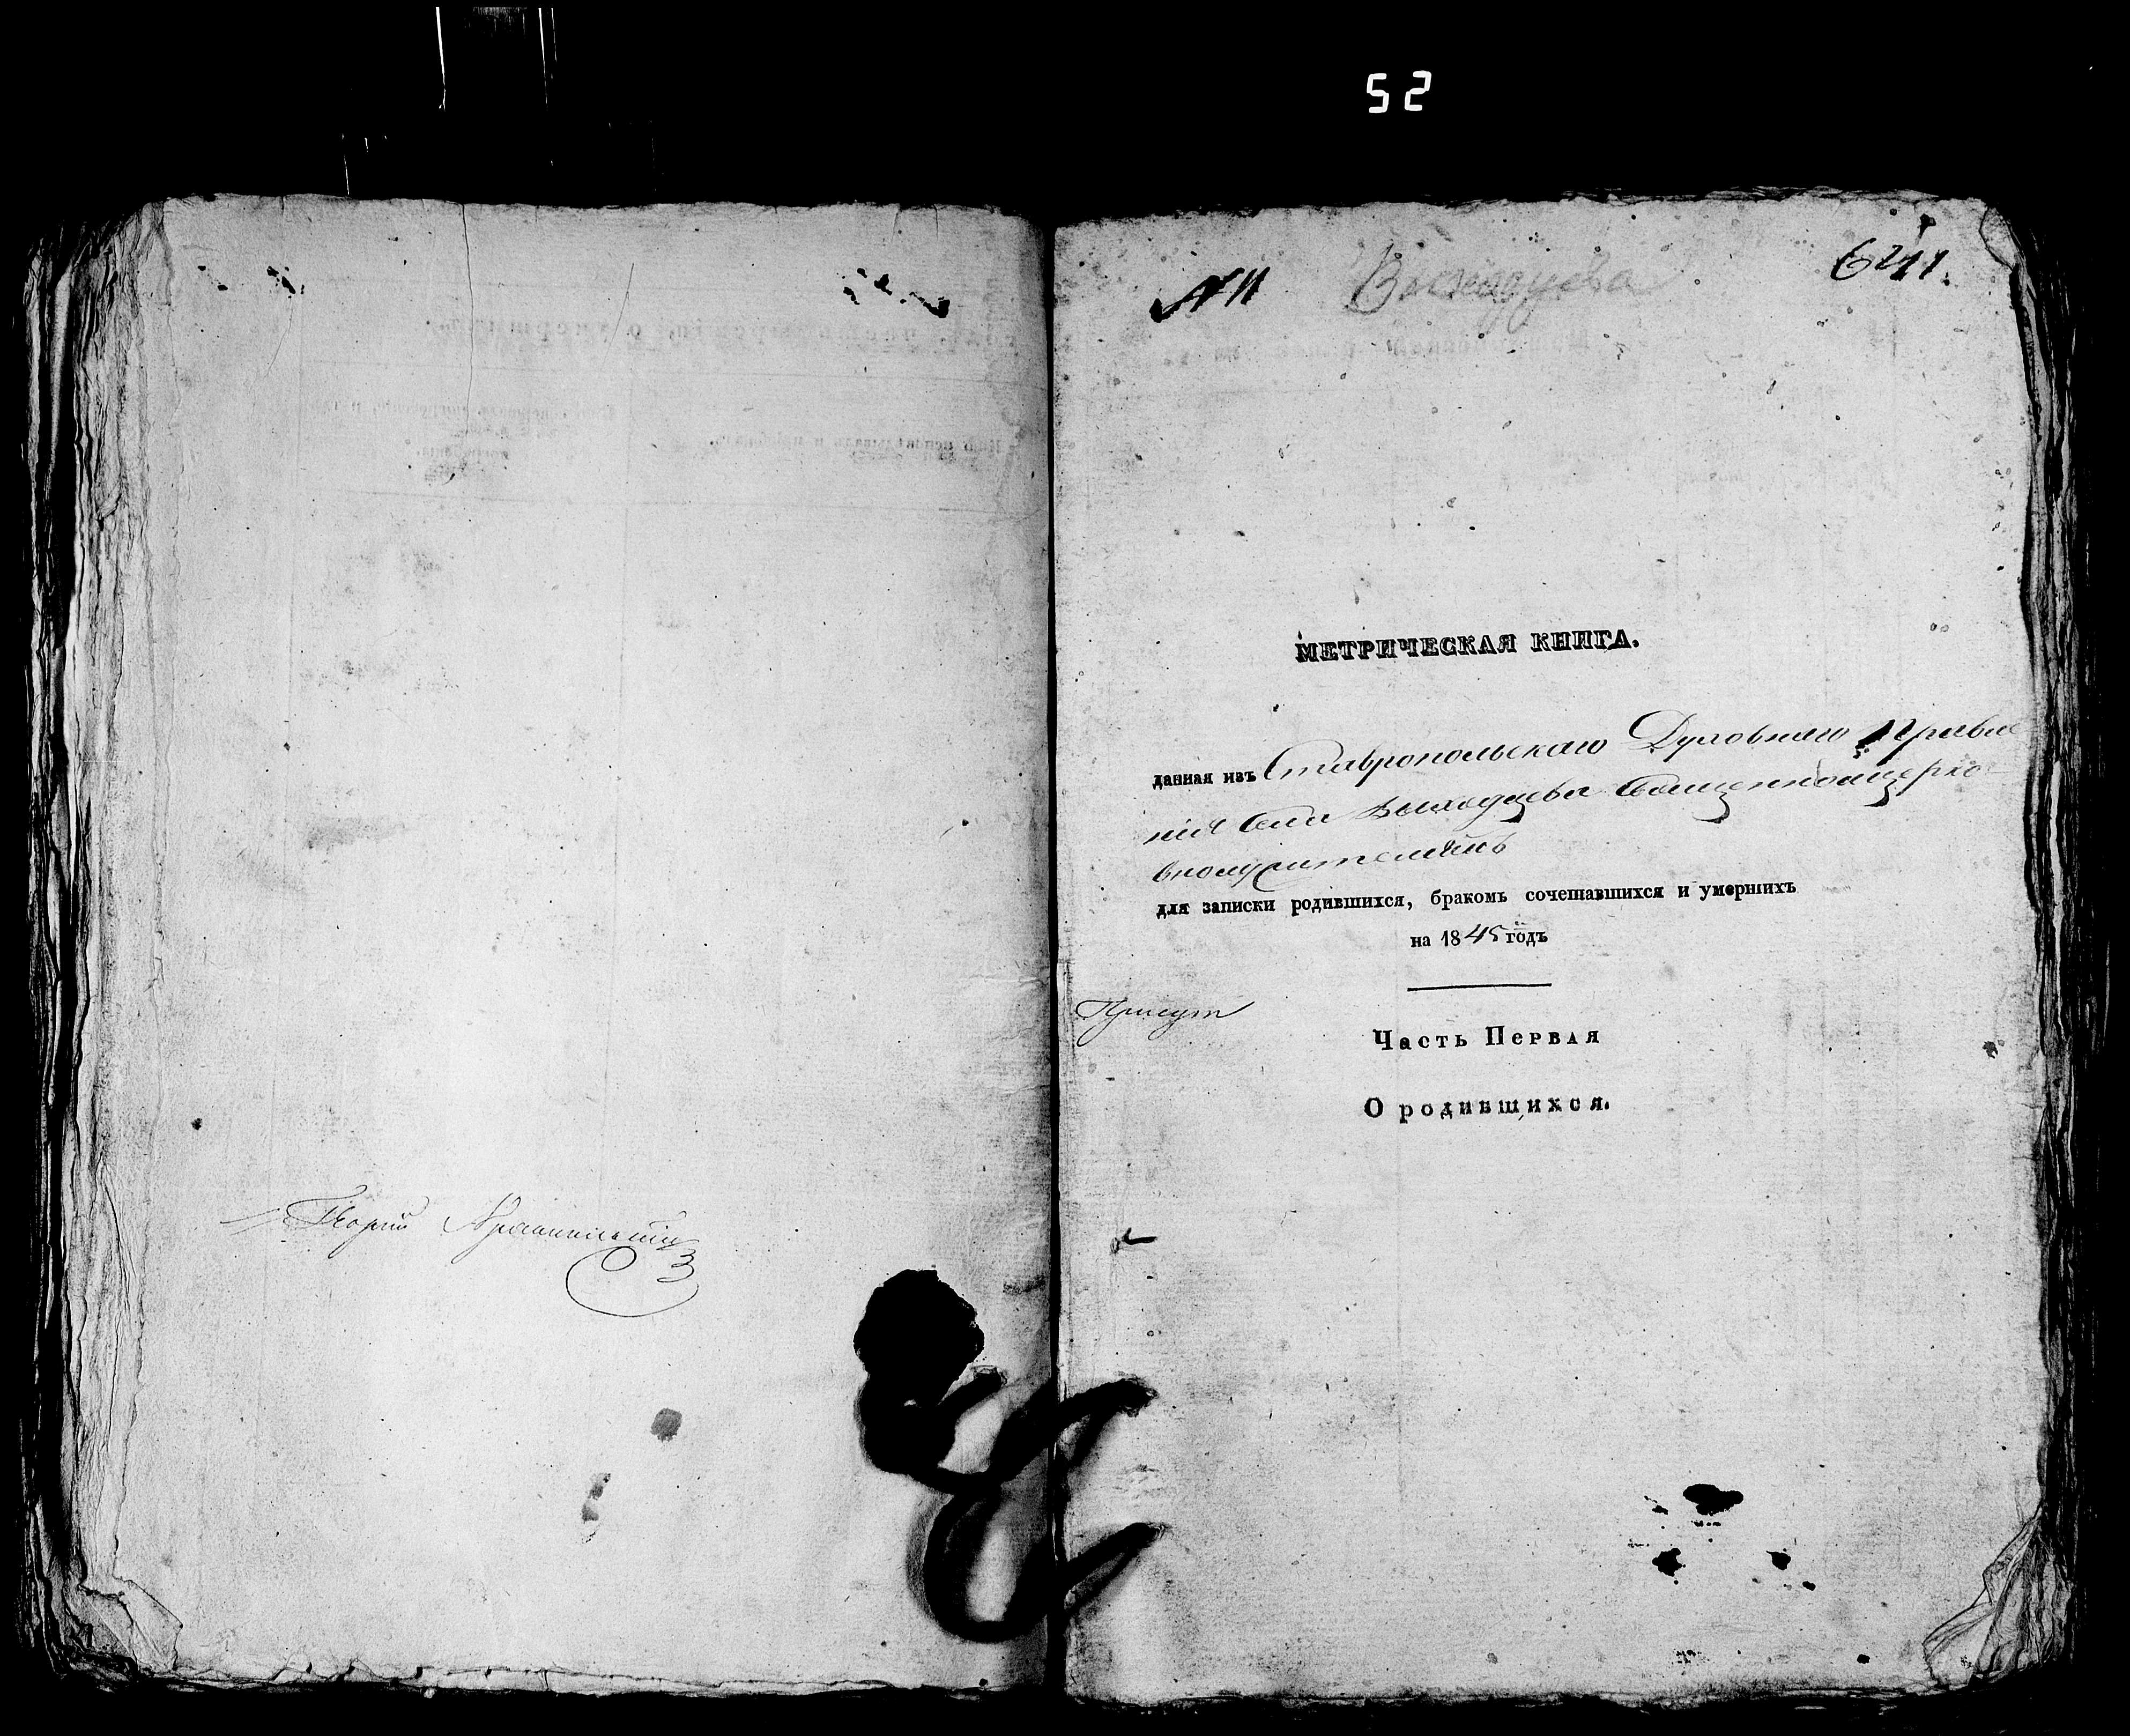 52
Георгій
№ 11
Выходцева
МЕТРИЧЕСКАЯ КНИГА.
данная изъ Ставропольскаго Духовнаго Правле
нія Села Выходцева Священноцерко-
внослужителямъ
для записки родившихся, бракомъ сочетавшихся и умершихъ
на 1845 годъ
Присут
Часть Первая
О родившихся.